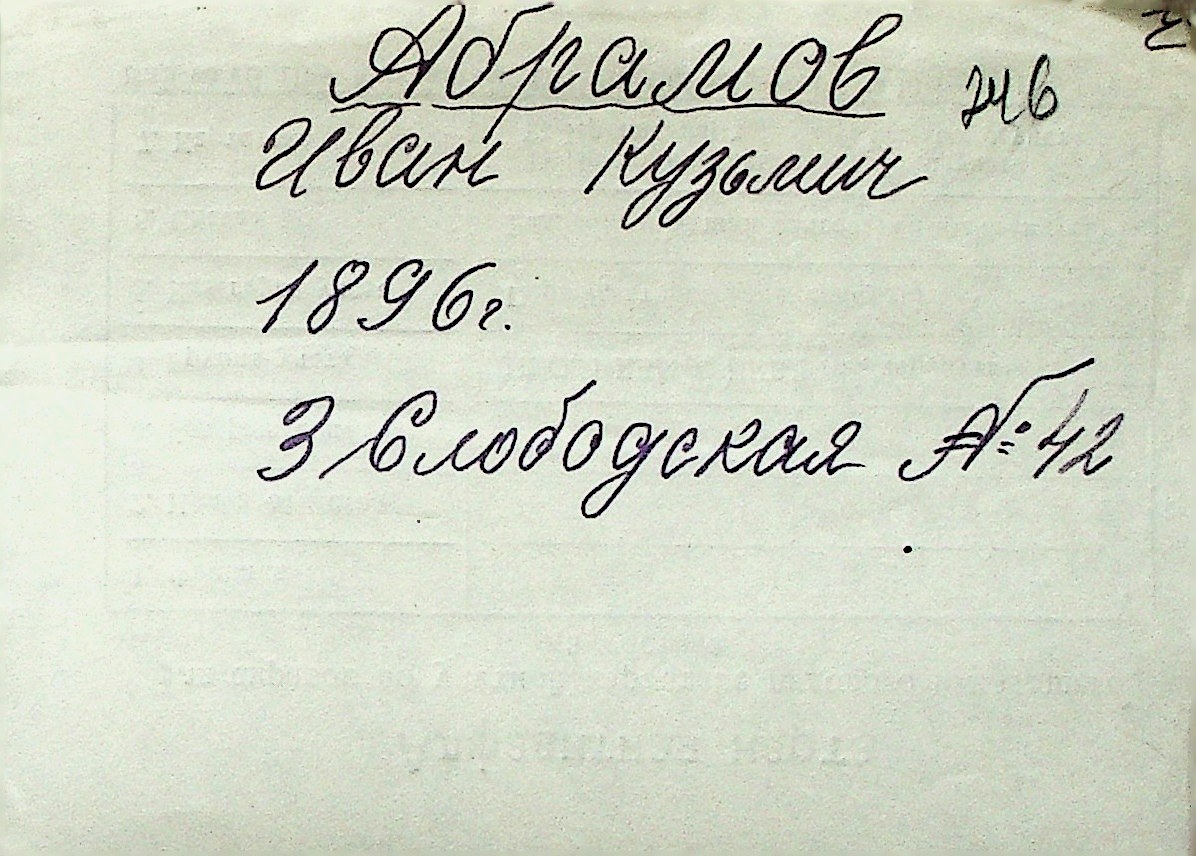 Абрамов
Иван Кузьмич
1896г.
3 Слободская № 42